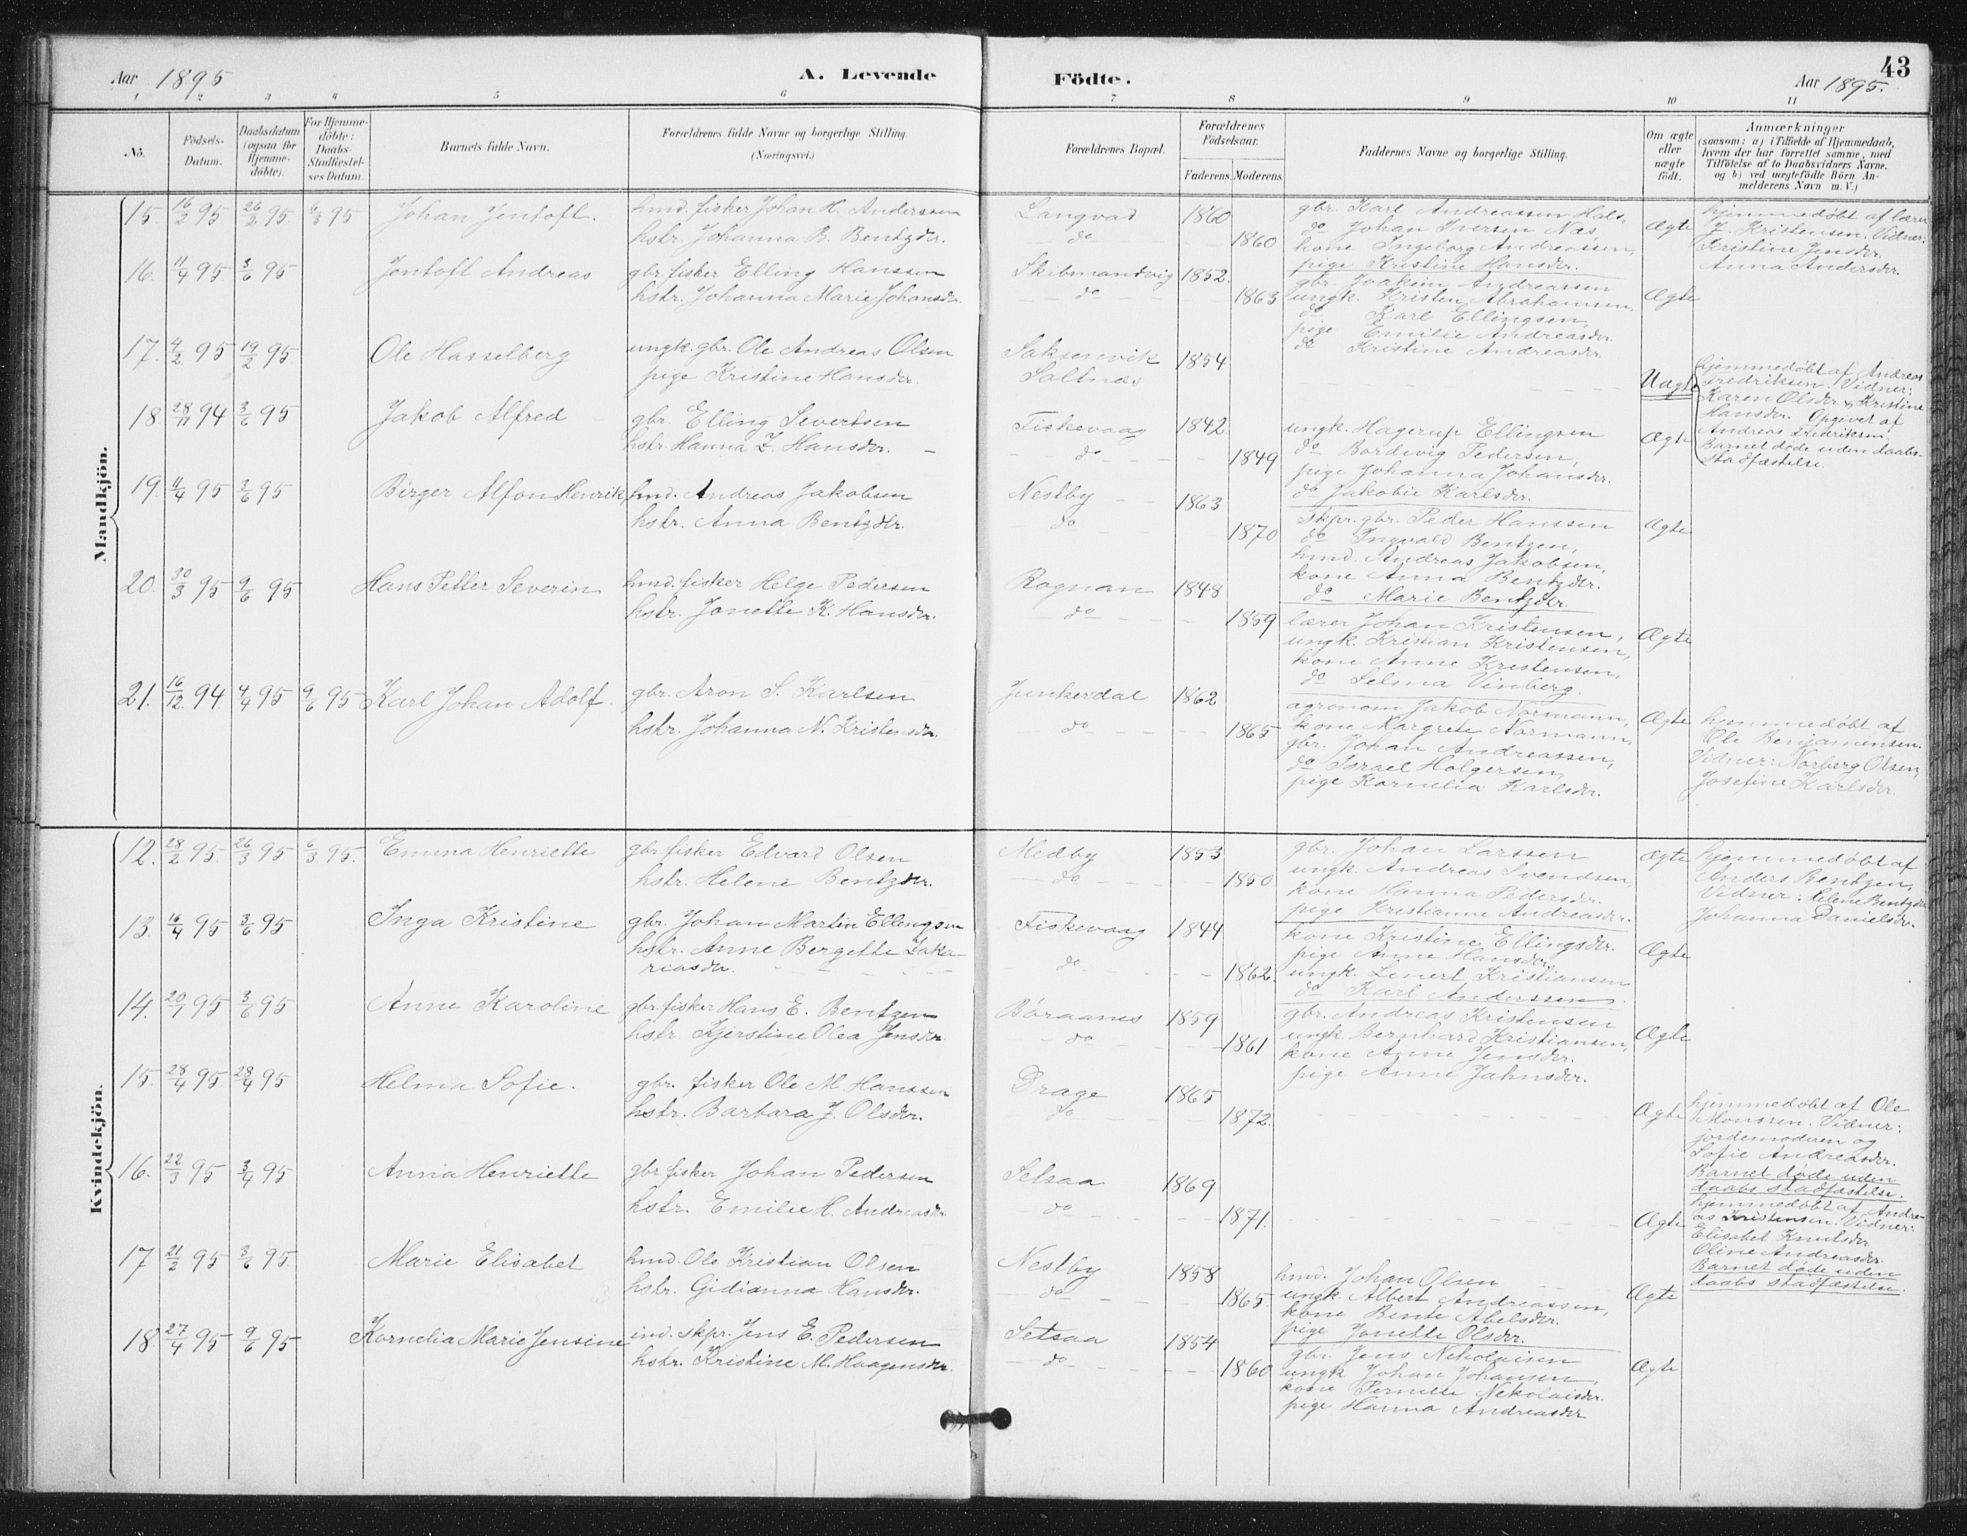 43
Aar 1895 A. Levende Födte. Aar 1895.
1 2 3 4 5 6 7 8 9 10 11
No. Födsels-Datum. Daabsdatum (ogsaa for Hjemme-döbte). For Hjemme-döbte: Daabs-Stadfæstel-ses Datum. Barnets fulde Navn. Forældrenes fulde Navne og borgerlige Stilling. (Næringsvei.) Forældrenes Bopæl. Forældrenes Födselsaar. Faderens. Moderens. Faddernes Navne og borgerlige Stilling. Om ægte eller uægte födt. Anmærkninger (saasom: a) i Tilfælde af Hjemmedaab, hvem der har forrettet samme, med Tilföielse af to Daabsvidners Navne. og b) ved uægtefödte Börn An-melderens Navn m. V.)
Mandkjön.
15. 16/2 95 26/2 95 6/3 95 Johan Jentoft. hmd. fisker Johan H. Anderssen Langvad 1860 gbr. Karl Andreassen Hals, Ægte hjemmedøbt af lærer
hstr. Johanna B. Bentzdr. do 1860 do Johan Iversen Næs, Z. Kristensen. Vidner:
kone Ingeborg Andreassen, Kristine Jensdr.
pige Kristine Hansdr. Anna Andersdr.
16. 11/4 95 3/6 95 Jentoft Andreas gbr. fisker Elling Hanssen Skibmandvig 1852. gbr. Joakim Andreassen
hstr. Johanna Marie Johansdr. do 1863 ungk. Kristen Abrahamsen, Ægte
do Karl Ellingsen,
pige Emilie Andreasdr.
do Kristine Andreasdr.
17. 4/2 95 19/2 95 Ole Hasselberg ungk. gbr. Ole Andreas Olsen Saksenvik 1854
pige Kristine Hansdr. Saltnes Uægte hjemmedøbt af Andreas
Fredriksen. Vidner:
Karen Olsdr. & Kristine
Hansdr. Opgivet af
Andreas Fredriksen.
Barnet døde uden daabs-
stadfæstelse.
18. 28/11 94 3/6 95 Jakob Alfred gbr. Elling Severtsen Fiskevaag 1842. ungk. Hagerup Ellingsen Ægte
hstr. Hanna Z. Hansdr. do 1849 do Bordevig Pedersen,
pige Johanna Johansdr.
do Jakobie Karlsdr.
19. 11/4 95 3/6 95 Birger Alfon Henrik hmd. Andreas Jakobsen Nestby 1863
hstr. Anna Bentzdtr. do 1870 skpr. gbr. Peder Hanssen Ægte
do Ingvald Bentzen,
hmd. Andreas Jakobsen,
kone Anna Bentzdr.
do Marie Bentzdr.
20. 30/3 95 9/6 95 Hans Petter Severin hmd. fisker Helge Pedersen Rognan 1848
hstr. Jonette K. Hansdr. do 1859 lærer Johan Kristensen, Ægte
ungk. Kristian Kristensen,
kone Anne Kristensen,
do Selma Vinberg.
21. 16/12. 94. 4/4 95 9/6 95 Karl Johan Adolf. gbr. Aron S. Karlsen Junkerdal 1862 agronom Jakob Normann,
hstr. Johanna N. Kristensdr. do 1865 kone Margrete Normann, Ægte hjemmedøbt af
gbr. Johan Andreassen, Ole Benjaminsen.
do Israel Holgersen, Vidner: Norberg Olsen,
pige Kornelia Karlsdr. Josefine Karlsdr.
Kvindekjön.
12. 28/2 95. 26/3 95 6/3 95. Emma Henriette gbr. fisker Edvard Olsen Medby 1853 gbr. Johan Larssen ægte hjemmedøbt af
hstr. Helene Bentzdr. do 1850 ungk. Andreas Svendsen, Anders Bentzen,
kone Hanna Pedersdr. Vidner: Helene Bentzdr
pige Kristianne Andreasdr. Johanna Danielsdr.
13. 16/4 95 3/6 95 Inga Kristine gbr. Johan Martin Ellingsen Fiskevaag 1844 kone Kristine Ellingsdr. Ægte
hstr. Anne Bergette Zaka- do 1862. pige Anne Hansdr.
riasdr. ungk. Lenert Kristiansen
do Karl Anderssen
14. 20/1 95 3/6 95 Anne Karoline gbr. fisker Hans E. Bentzen Böraanes 1859 gbr. Andreas Kristensen
hstr. Kjerstine Olea Jensdr. do 1861 ungk. Bernhard Kristiansen, Ægte
kone Anne Jensdr.
pige Anne Jahnsdr.
15. 28/4 95 28/4 95 Helma Sofie. gbr. fisker Ole M. Hanssen Drage 1865
hstr. Barbara J. Olsdr. do 1872. Ægte hjemmedøbt af Ole
Monssen. Vidner:
jordemoderen og
Sofie Andreasdr.
Barnet døde uden
daabs stadfæstelse.
16. 22/3 95 3/4 95 Anna Henriette gbr. fisker Johan Pedersen Setsaa 1869
hstr. Emilie H. Andreasdr. do 1871. Ægte hjemmedøbt af Andre-
as Kristensen. Vidner:
Elisabet Knutsdr.
Oline Andreasdr.
Barnet døde uden
daabs stadfæstelse.
17 21/2 95 3/6 95. Marie Elisabet hmd. Ole Kristian Olsen Nestby 1858 hmd. Johan Olsen
hstr. Gidianna Hansdr. do 1865. ungk Albert Andreassen, Ægte
kone Bente Abelsdr.
pige Jonette Olsdr.
18. 27/4 95 9/6 95 Kornelia Marie Jensine ind. skpr. Jens E. Pedersen Setsaa 1854 gbr. Jens Nekolaisen
hstr. Kristine M. Haagensdr. do 1860 ungk Johan Johansen, Ægte
kone Pernille Nekolaisdr.
pige Hanna Andreasdr